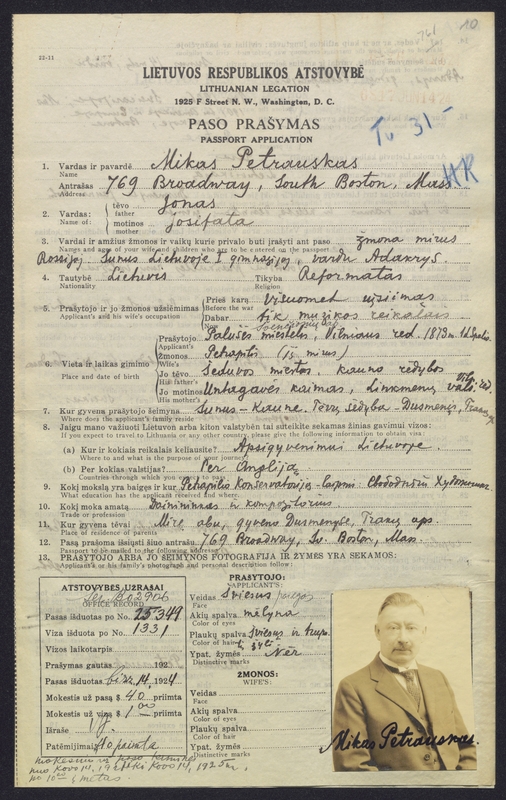 22-11
10
LIETUVOS RESPUBLIKOS ATSTOVYBĖ
LITHUANIAN LEGATION
1925 F Street N. W., Washington, D. C.
PASO PRAŠYMAS
PASSPORT APPLICATION
1. Vardas ir pavardė Mikas Petrauskas
Name
Antrašas 769 Broadway, South Boston, Mass
Address
2. Vardas: tėvo Jonas
Name of: father
motinos Josifata
mother
3. Vardai ir amžius žmonos ir vaikų kurie privalo buti įrašyti ant paso žmona mirus
Names and ages of your wife and children who are to be entered on the passport
Rossijoj. Sunus Lietuvoje gimnazijoj, vardu
4. Tautybė Lietuvis Tikyba Reformatas
Nationality Religion
5. Prašytojo ir jo žmonos užsiėmimas Prieš karą Visuomet
Applicant's and his wife's occupation Before the war
Dabar tik muzikos reikalais
Now
6. Vieta ir laikas gimimo
Place and date of birth
Prašytojo Palušės miestelis, Vilniaus red. 1873 m.
Applicant's
Žmonos (15 mirus)
Wife's
Jo tėvo Šeduvos miestas, Kauno rėdybos
His father's
Jo motinos kaimas, Linkmenų vals.
His mother's
7. Kur gyvena prašytojo šeimyna Sunus - Kaune. Tėvų sėdyba - Dusmenys,
Where does the applicant's family reside
8. Jaigu mano važiuoti Lietuvon arba kiton valstybėn tai suteikite sekamas žinias gavimui vizos:
If you expect to travel to Lithuania or any other country, please give the following information to obtain visa:
(a) Kur ir kokiais reikalais keliausite? Apsigyvenimui Lietuvoje.
Where to and what is the purpose of your journey
(b) Per kokias valstijas? Per Angliją
Countries through which you expect to pass
9. Kokį mokslą yra baigęs ir kur Petrapilio Konservatoriją
What education has the applicant received and where
10. Kokį moka amatą Dainininkas ir kompozitorius
Trade or profession
11. Kur gyvena tėvai Mirę abu, gyveno Dusmenyse, Trakų aps.
Place of residence of parents
12. Pasą prašoma išsiųsti šiuo antrašu 769 Broadway, So. Boston, Mass.
Passport to be mailed to the following address
13. PRAŠYTOJO ARBA JO ŠEIMYNOS FOTOGRAFIJA IR ŽYMĖS YRA SEKAMOS:
Applicant's or his family's photograph and personal description follow:
ATSTOVYBĖS UŽRAŠAI
OFFICE RECORD
Pasas išduotas po No. 25349
Viza išduota po No. 1331
Vizos laikotarpis
Prašymas gautas 192
Pasas išduotas 14, 1924
Mokestis už pasą $ 40 priimta
Mokestis už vizą $ 1 00 priimta
Išrašė
Patėmijimai
PRAŠYTOJO:
APPLICANT'S:
Veidas Šviesus
Face
Akių spalva mėlyna
Color of eyes
Plaukų spalva šviesus ir
Color of hair
Ypat. žymės Nėr
Distinctive marks
ŽMONOS:
WIFE'S:
Veidas
Face
Akių spalva
Color of eyes
Plaukų spalva
Color of hair
Ypat. žymės
Distinctive marks
Mikas Petrauskas.